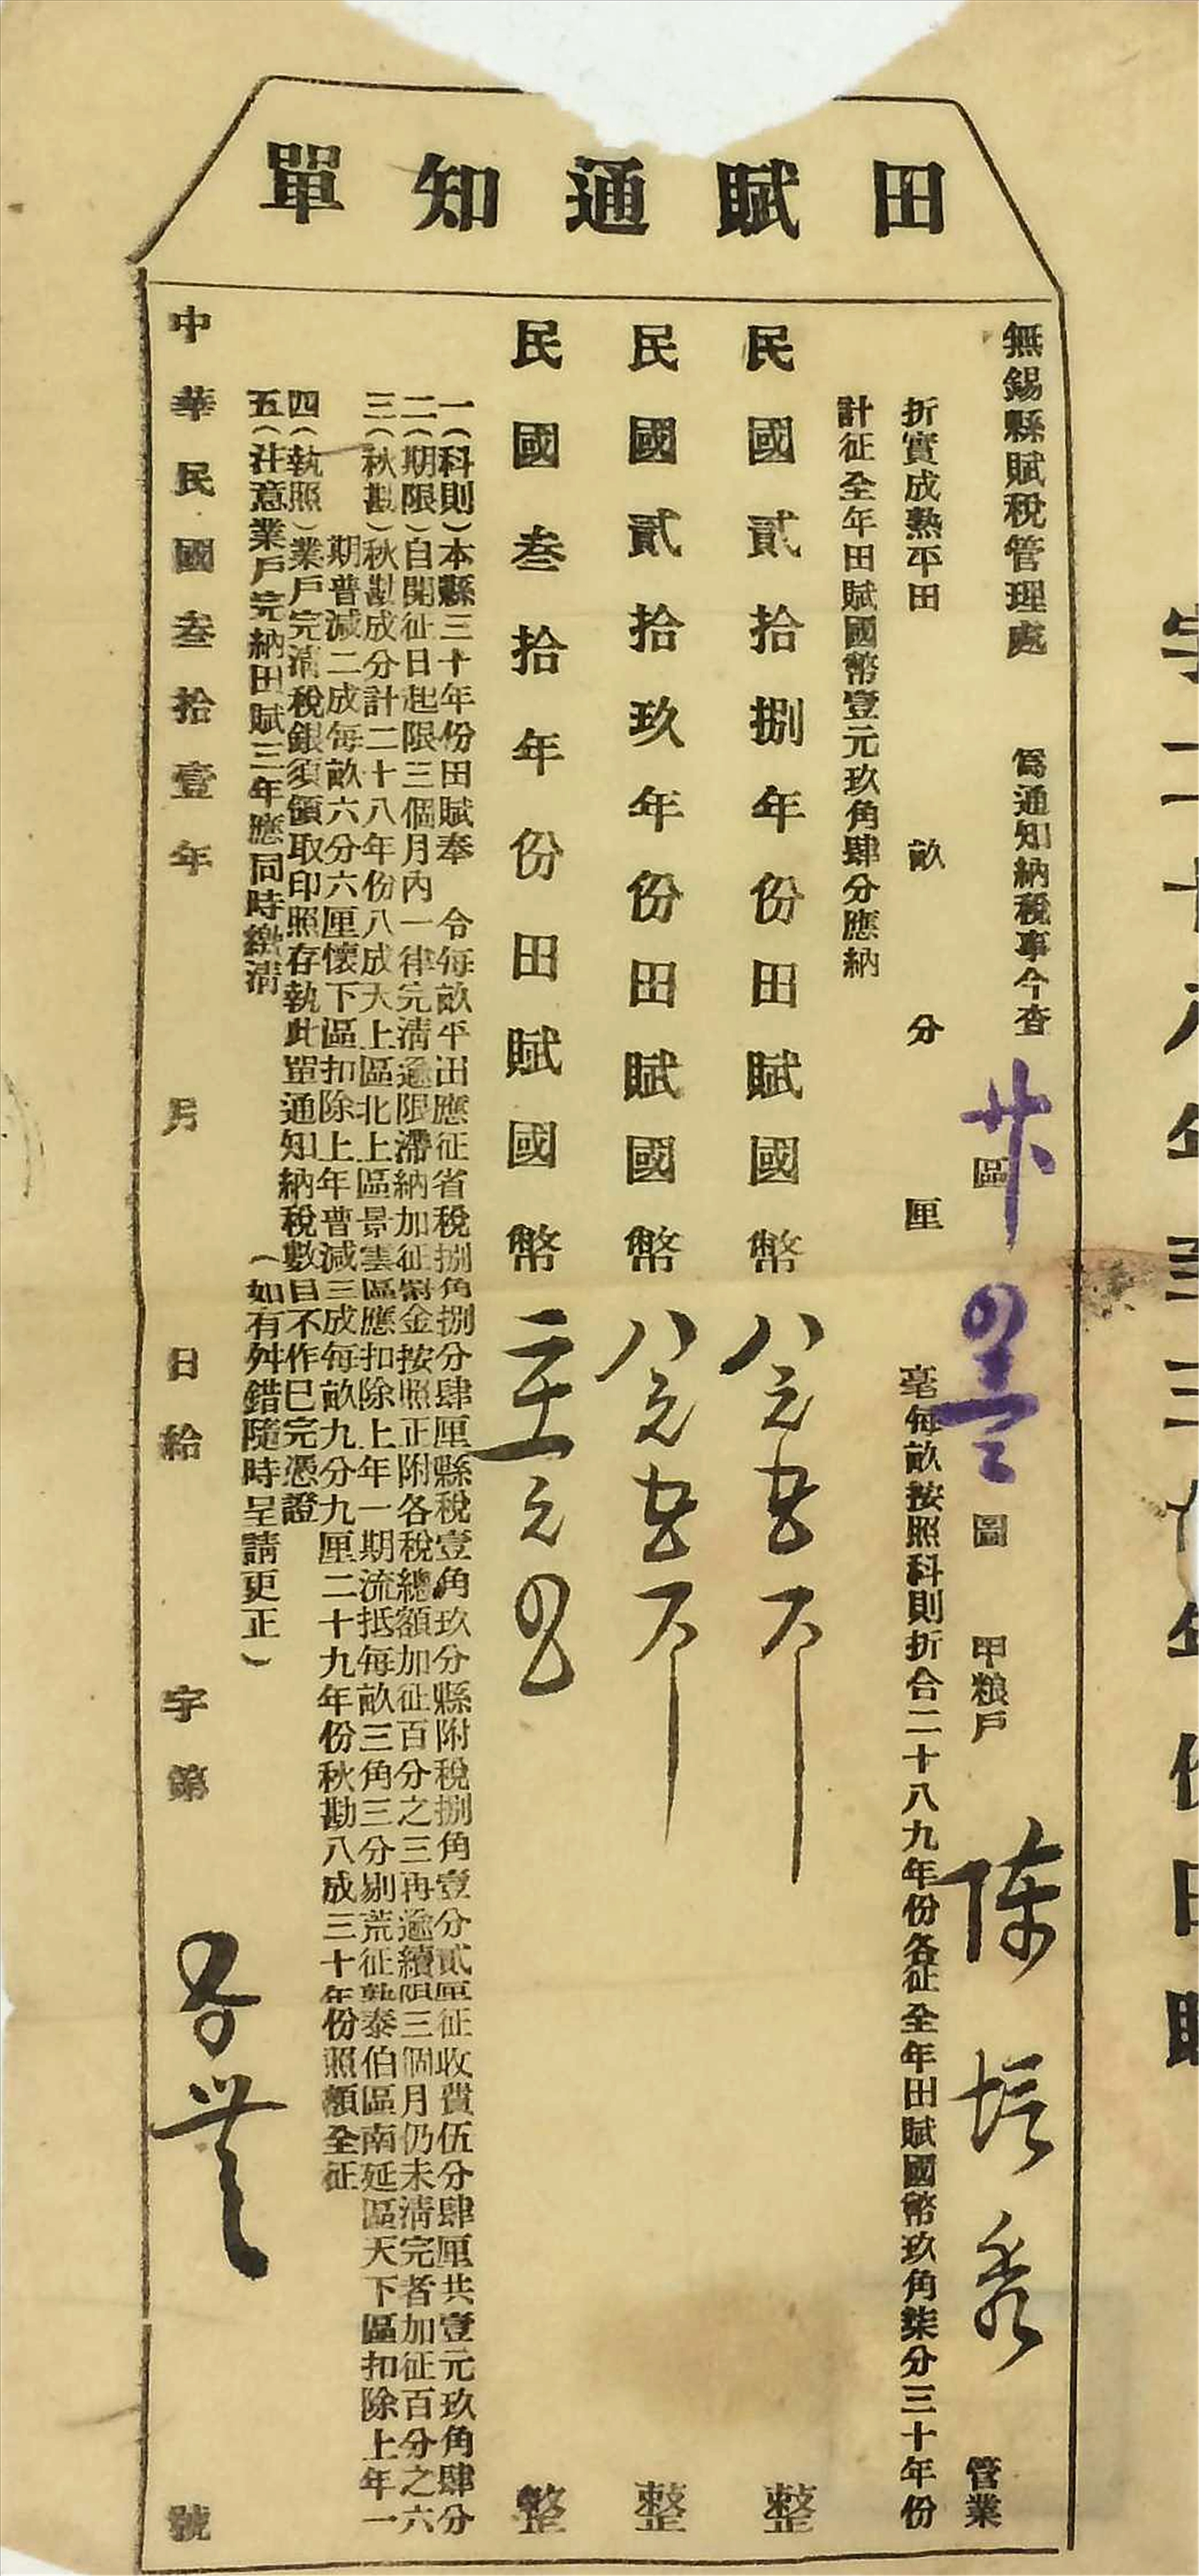 田賦通知單
無錫縣賦稅管理處 為通知納稅事今查 區 圖 甲糧戶 陳 秀 管業
折實成熟平田 畝 分 厘 毫每畝按照科則折合二十八九年份各征全年田賦國幣玖角柒分三十年份
計征全年田賦國幣壹元玖角肆分應納
民國貳拾捌年份田賦國幣 八元 整
民國貳拾玖年份田賦國幣 八元 整
民國叁拾年份田賦國幣 元 整
一（科則）本縣三十年份田賦奉 令每畝平田應征省稅捌角捌分肆厘縣稅壹角玖分縣附稅捌角壹分貳厘征收費伍分肆厘共壹元玖角肆分
二（期限）自開征日起限三個月內一律完清逾限滯納加征罰金按照正附各稅總額加征百分之三再逾續限三個月仍未清完者加征百分之六
三（秋勘）秋勘成分計二十八年份八成天上區北上區景雲區應扣除上年一期流抵每畝三角三分剔荒征熟泰伯區南延區天下區扣除上年一
期普減二成每畝六分六厘懷下區扣除上年普減三成每畝九分九厘二十九年份秋勘八成三十年份照額全征
四（執照）業戶完清稅銀須領取印照存執此單通知納稅數目不作已完憑證
五（注意業戶完納田賦三年應同時繳清 （如有舛錯隨時呈請更正）
中華民國叁拾壹年 月 日給 字第 號